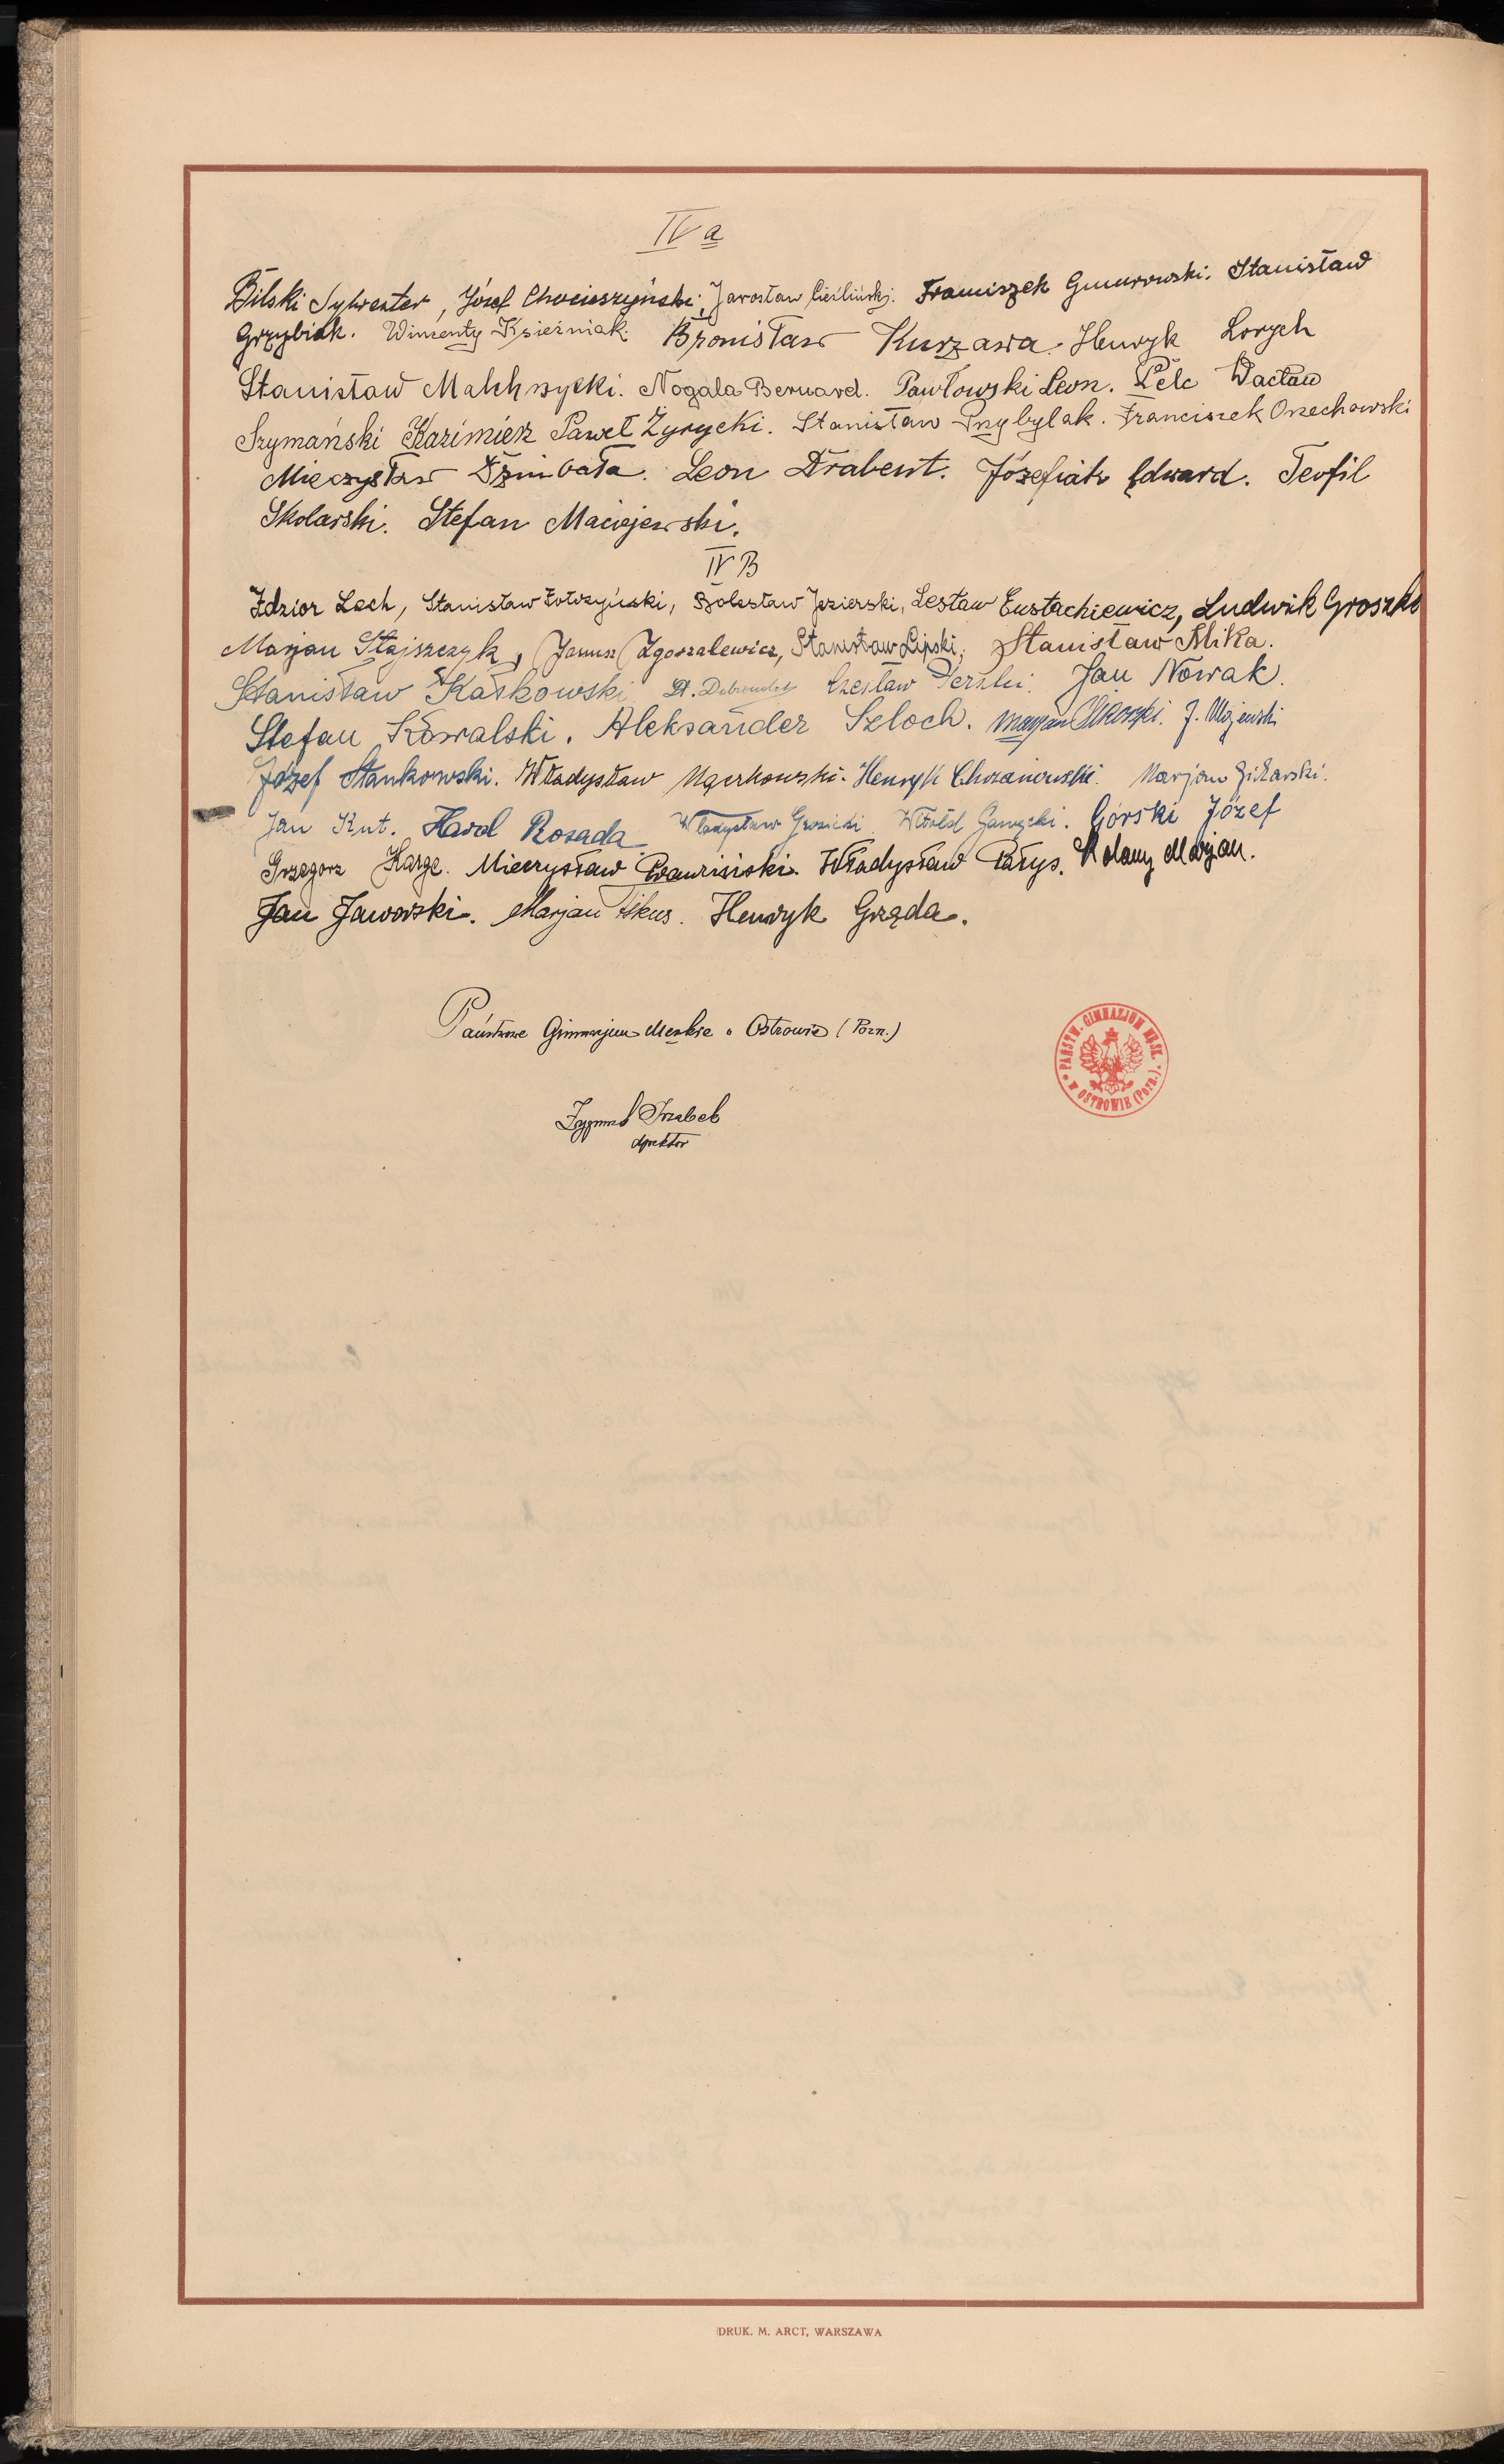 IV a
Bilski Sylwester, Józef Chocieszyński, Jarosław Cieśliński. Franciszek Gmurowski. Stanisław
Grzybiak. Wincenty Księźniak. Bronisław Kurzawa. Henryk Lorych
Stanisław Malchrzycki. Nogala Bernard. Pawłowski Leon. Pelc Wacław
Szymański Kazimierz Paweł Żyrycki. Stanisław Przybylak. Franciszek Orzechowski
Mieczysław Dzimbała. Leon Drabent. Józefiak Edward. Teofil
Skolarski. Stefan Maciejewski.
IV B
Idzior Lech, Stanisław Zołdzyński, Bolesław Jezierski, Lesław Eustachiewicz, Ludwik Groszki
Marjan Stajszczyk, Janusz Zgorzalewicz, Stanisław Lipski, Stanisław Mika.
Stanisław Kaśkowski St. Czesław Perski. Jan Nowak.
Stefan Kowalski. Aleksander Szloch. Marjan J. Majewski
Józef Stankowski. Władysław Węckowski. Henryk Chrzanowski. Marjan Giżarski.
Jan Knt. Karol Rosada. Władysław Grosicki. Witold Gawęcki. Górski Józef
Grzegorz Karge. Mieczysław Władysław Parys. Kolany Marjan.
Jan Jaworski. Marjan Fikus. Henryk Grzęda.
Państwowe Gimnazjum Męskie w Ostrowie (Pozn.)
PAŃSTW. GIMNAZJUM MĘSK. W OSTROWIE (Pozn.)
Zygmunt Trzebeb
dyrektor
DRUK. M. ARCT, WARSZAWA